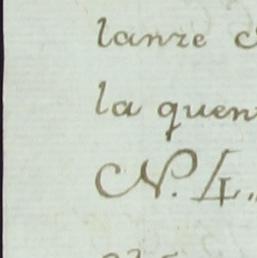 lanze
la quen
N. 4.